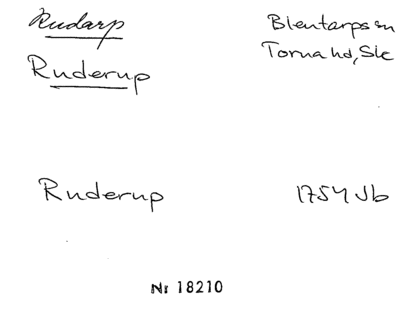 Rudarp
Blentarps sn
Torna hd, Sk
Ruderup
Ruderup
1754 Jb
Nr 18210